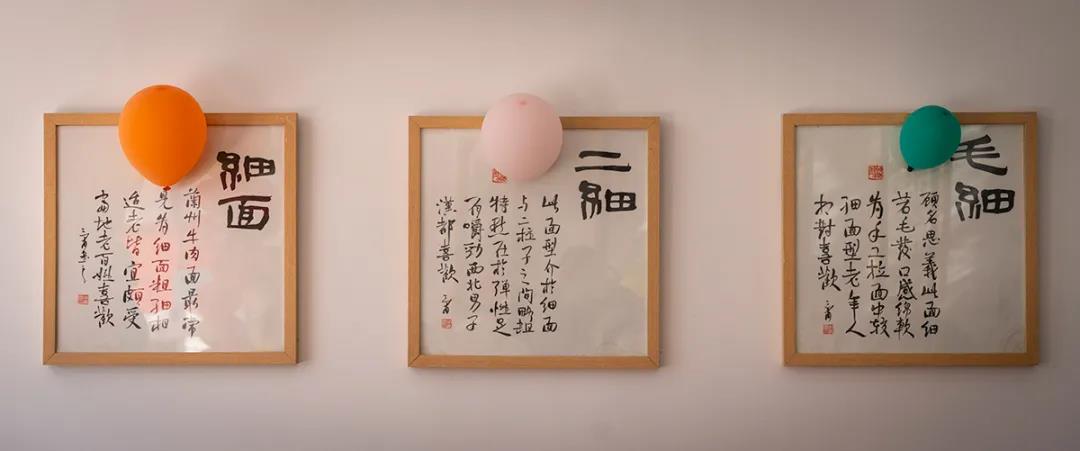 細面
蘭州牛肉面最常
見為細面粗細相
适老皆宜頗受
當地老百姓喜歡
二細
此面型介於細面
与二柱子之間略粗
特點在於彈性足
有嚼勁西北男子
漢都喜歡
毛細
顧名思義此面細
若毛發口感綿軟
為手工拉面中較
細面型老年人
相對喜歡